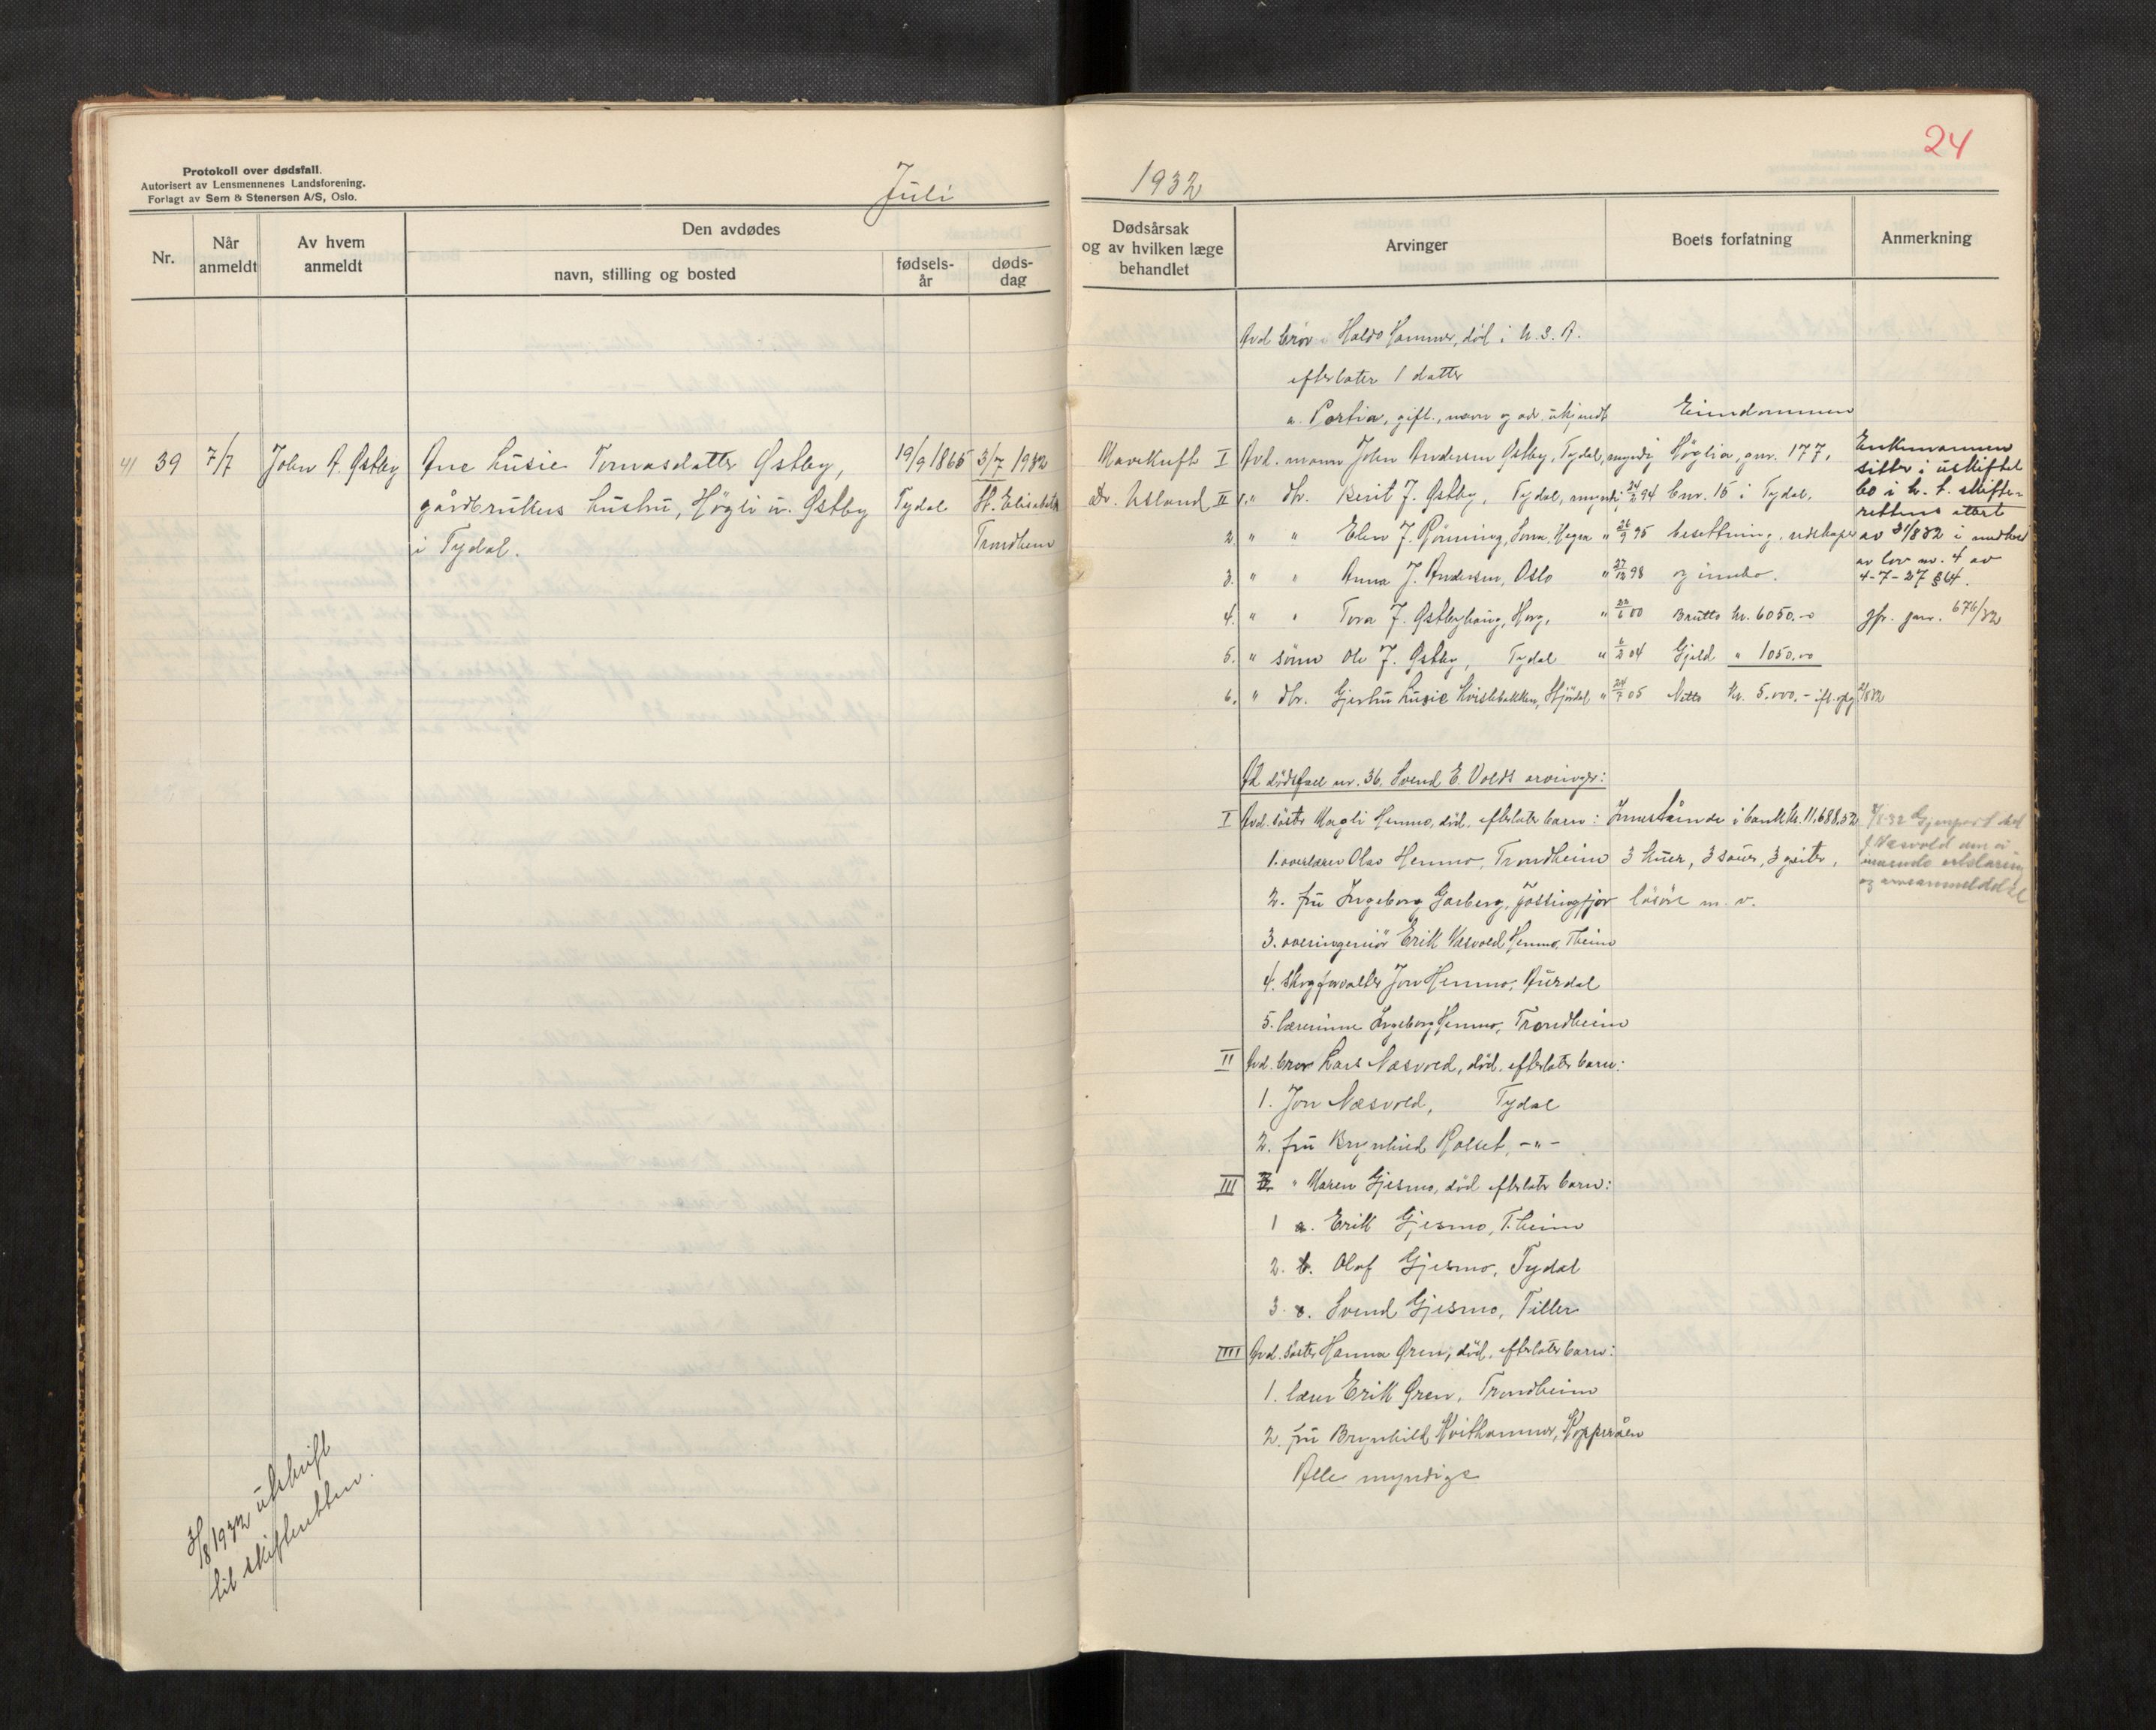 Protokoll over dødsfall.
Autorisert av Lensmennenes Landsforening.
Forlagt av Sem & Stenersen A/S, Oslo.
Juli
Nr.
Når anmeldt
Av hvem anmeldt
Den avdødes
navn, stilling og bosted
fødsels-år
døds-dag
41 39 7/7 John A. Østby Ane Lusie Tomasdatter Østby, 19/9 1865 3/7 1932
gårdbrukers hustru, Høgli u. Østby Tydal St. Elisabeth
i Tydal. Trondheim
3/8 1932 utskrift
til skifteretten.
24
1932
Dødsårsak og av hvilken læge behandlet
Arvinger
Boets forfatning
Anmerkning
Avd. bror Haldo Hammer, død i U.S.A.
efterlater 1 datter
a. Portia, gift, navn og adr. ukjendt Eiendommen
Mavekreft I Avd. mann John Andersen Østby, Tydal, myndig Høglia, gnr. 177, Enkemannen
sitter i uskiftet
Dr. Usland II 1. " dtr. Berit J. Østby, Tydal, myndig 24/2 94 bnr. 15 i Tydal. bo i h. t. skifte-
rettens attest
2. " " Elen J. Rønning, Hegra " 26/9 95 besettning, redskaper av 31/8 32 i medhold
av lov nr. 4 av
3. " " Anna J. Andersen, Oslo " 27/12 98 og innbo. 4-7-27 § 64.
4. " " Tora J. Østbyhaug, Horg, " 22/6 00 Brutto kr. 6050.- jfr. jnr. 676/32
5. " sønn Ole J. Østby, Tydal " 6/2 04 Gjeld " 1050.00
6. " dtr. Gjertru Lusie Kvistebakken, Stjørdal " 24/7 05 Netto kr. 5.000.- ifl. opg. 2/8 32
Ad dødsfall nr. 36. Svend E. Volds arvinger:
I Avd. søster Magli Hemmo, død, efterlater barn: Innestående i bank kr. 11.688.52
1. overlærer Olav Hemmo, Trondheim 3 kuer, 3 sauer, 3 geiter,
2. fru Ingeborg Garberg, Jøssingfjor løsøre m. v.
3. overingeniør Erik Næsvold Hemmo, Theim
4. skogforvalter Jon Hemmo, Aurdal
5. lærerinne Ingeborg Hemmo, Trondheim
II Avd. bror Lars Næsvold, død, efterlater barn:
1. Jon Næsvold, Tydal
2. fru Brynhild Rolset, -"-
III " Maren Gjesmo, død efterlater barn:
1 a. Erik Gjesmo, T.heim
2. b. Olaf Gjesmo, Tydal
3. c. Svend Gjesmo, Tiller
IIII Avd. søster Hanna Øren, død, efterlater barn:
1. lærer Erik Øren, Trondheim
2. fru Brynhild Kvithammer, Kopperåen
Alle myndige